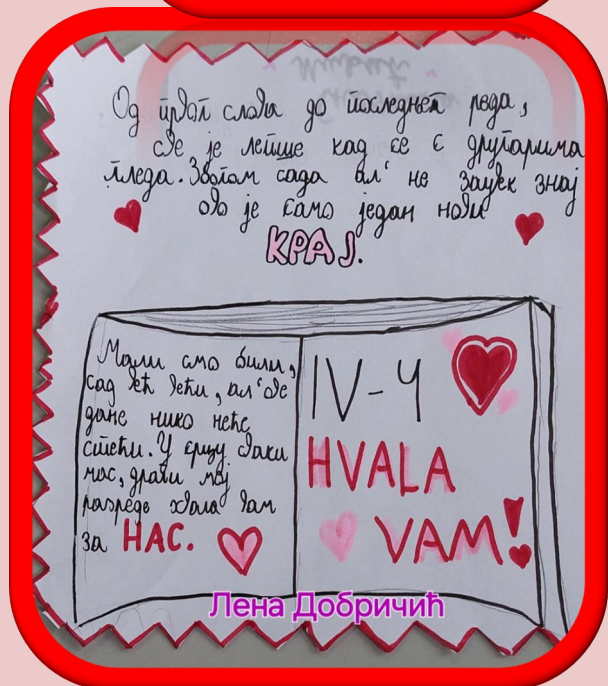 Од првог слова до последњег реда,
све је лепше кад се с другарима
гледа. Збогом сада ал' не заувек знај
ово је само један нови
КРАЈ.
Мали смо били,
сад већ већи, ал' ове
дане нико неће
стећи. У срцу сваки
час, драги мој
разреде хвала вам
за НАС.
IV-4
HVALA
VAM!
Лена Добричић